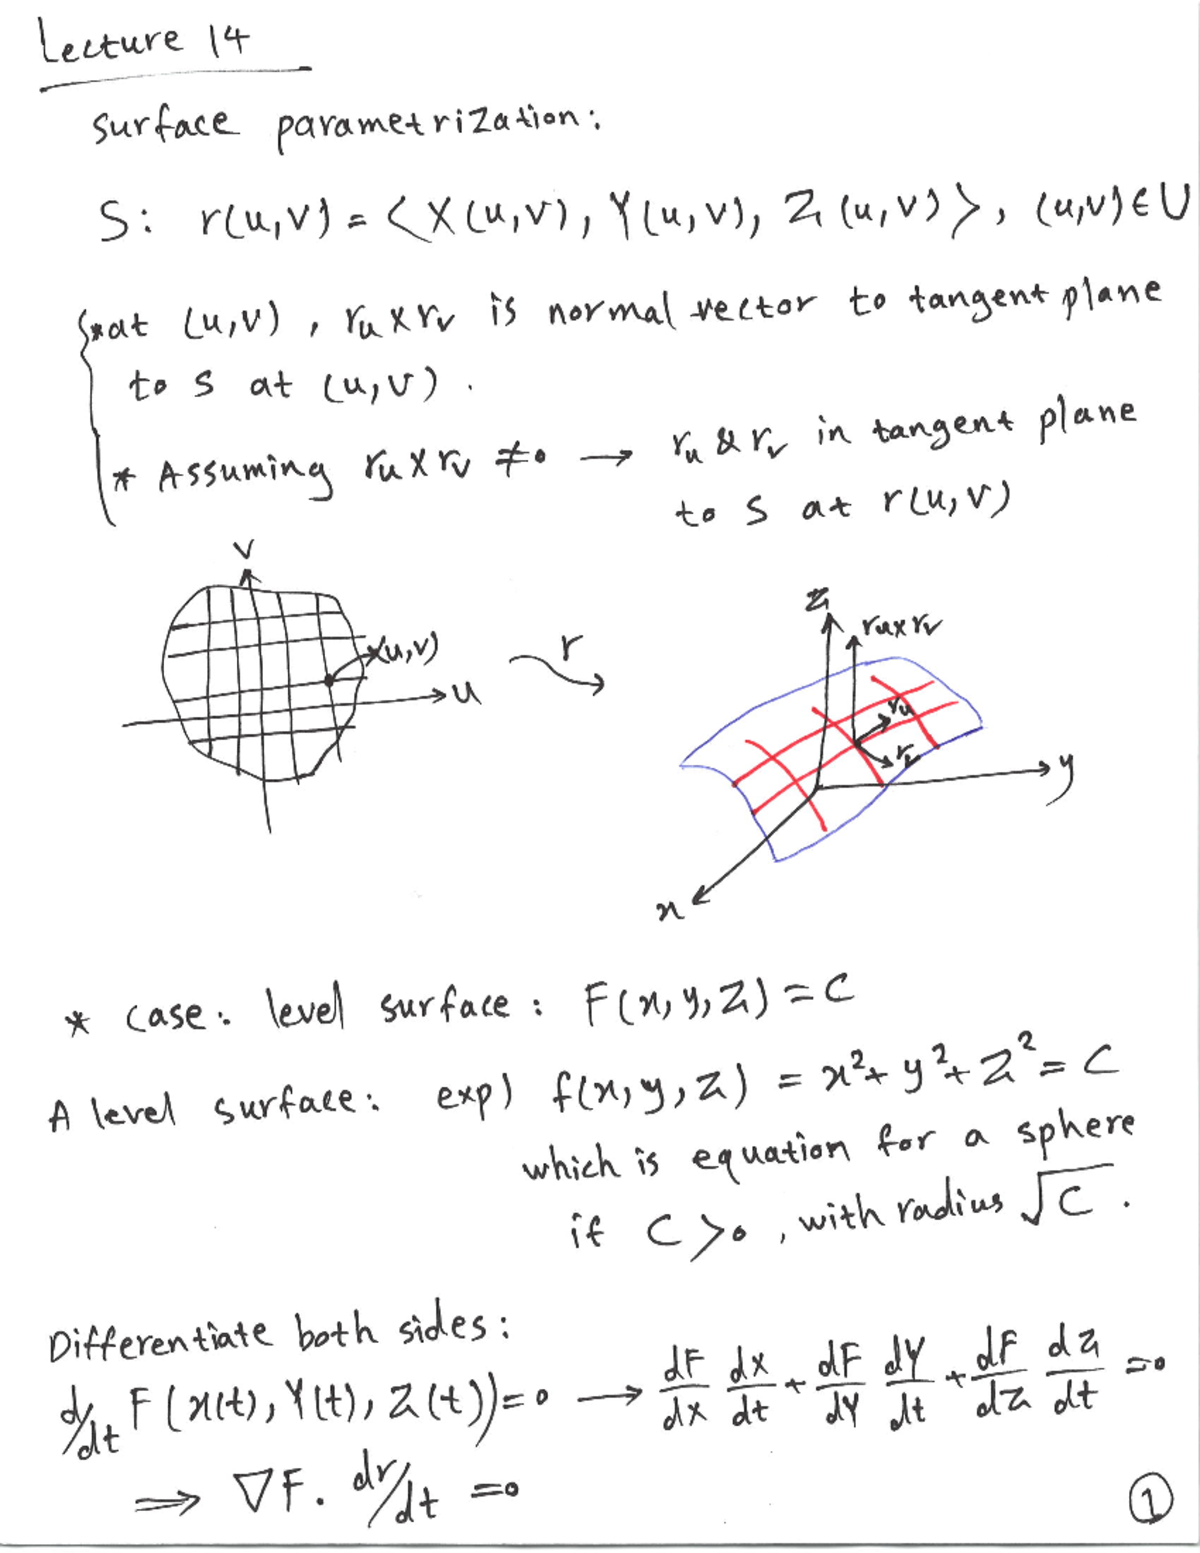 Lecture 14
surface parametrization:
S: r(u,v) = <X(u,v), Y(u,v), Z(u,v)>, (u,v) ∈ U
*at (u,v), ru x rv is normal vector to tangent plane
to S at (u,v).
* Assuming ru x rv ≠ 0 → ru & rv in tangent plane
to S at r(u,v)
v
(u,v)
u
r
z
ru x rv
ru
rv
y
x
* case: level surface: F(x,y,z) = C
A level surface: exp) f(x,y,z) = x²+y²+z² = C
which is equation for a sphere
if C>0, with radius √C.
Differentiate both sides:
d/dt F(x(t), Y(t), Z(t)) = 0 → dF/dx dx/dt + dF/dY dY/dt + dF/dz dz/dt = 0
⇒ ∇F. dr/dt = 0
1